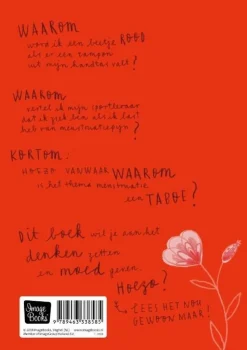 WAAROM
word ik een beetje ROOD
als er een tampon
uit mijn handtas valt?
WAAROM
vertel ik mijn sportleraar
dat ik ziek ben als ik last
heb van menstruatiepijn?
KORTOM:
HOEZO VANWAAR WAAROM
is het thema menstruatie
een TABOE?
Dit boek wil je aan het
denken zetten
en moed geven.
Hoezo?
LEES HET NOU
GEWOON MAAR!
Image
Books
9 789463 338385